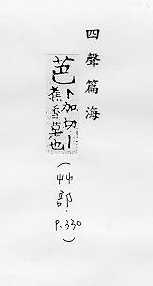 四聲篇海
芭卜加切｜
蕉香草也
(艸部．P.330)